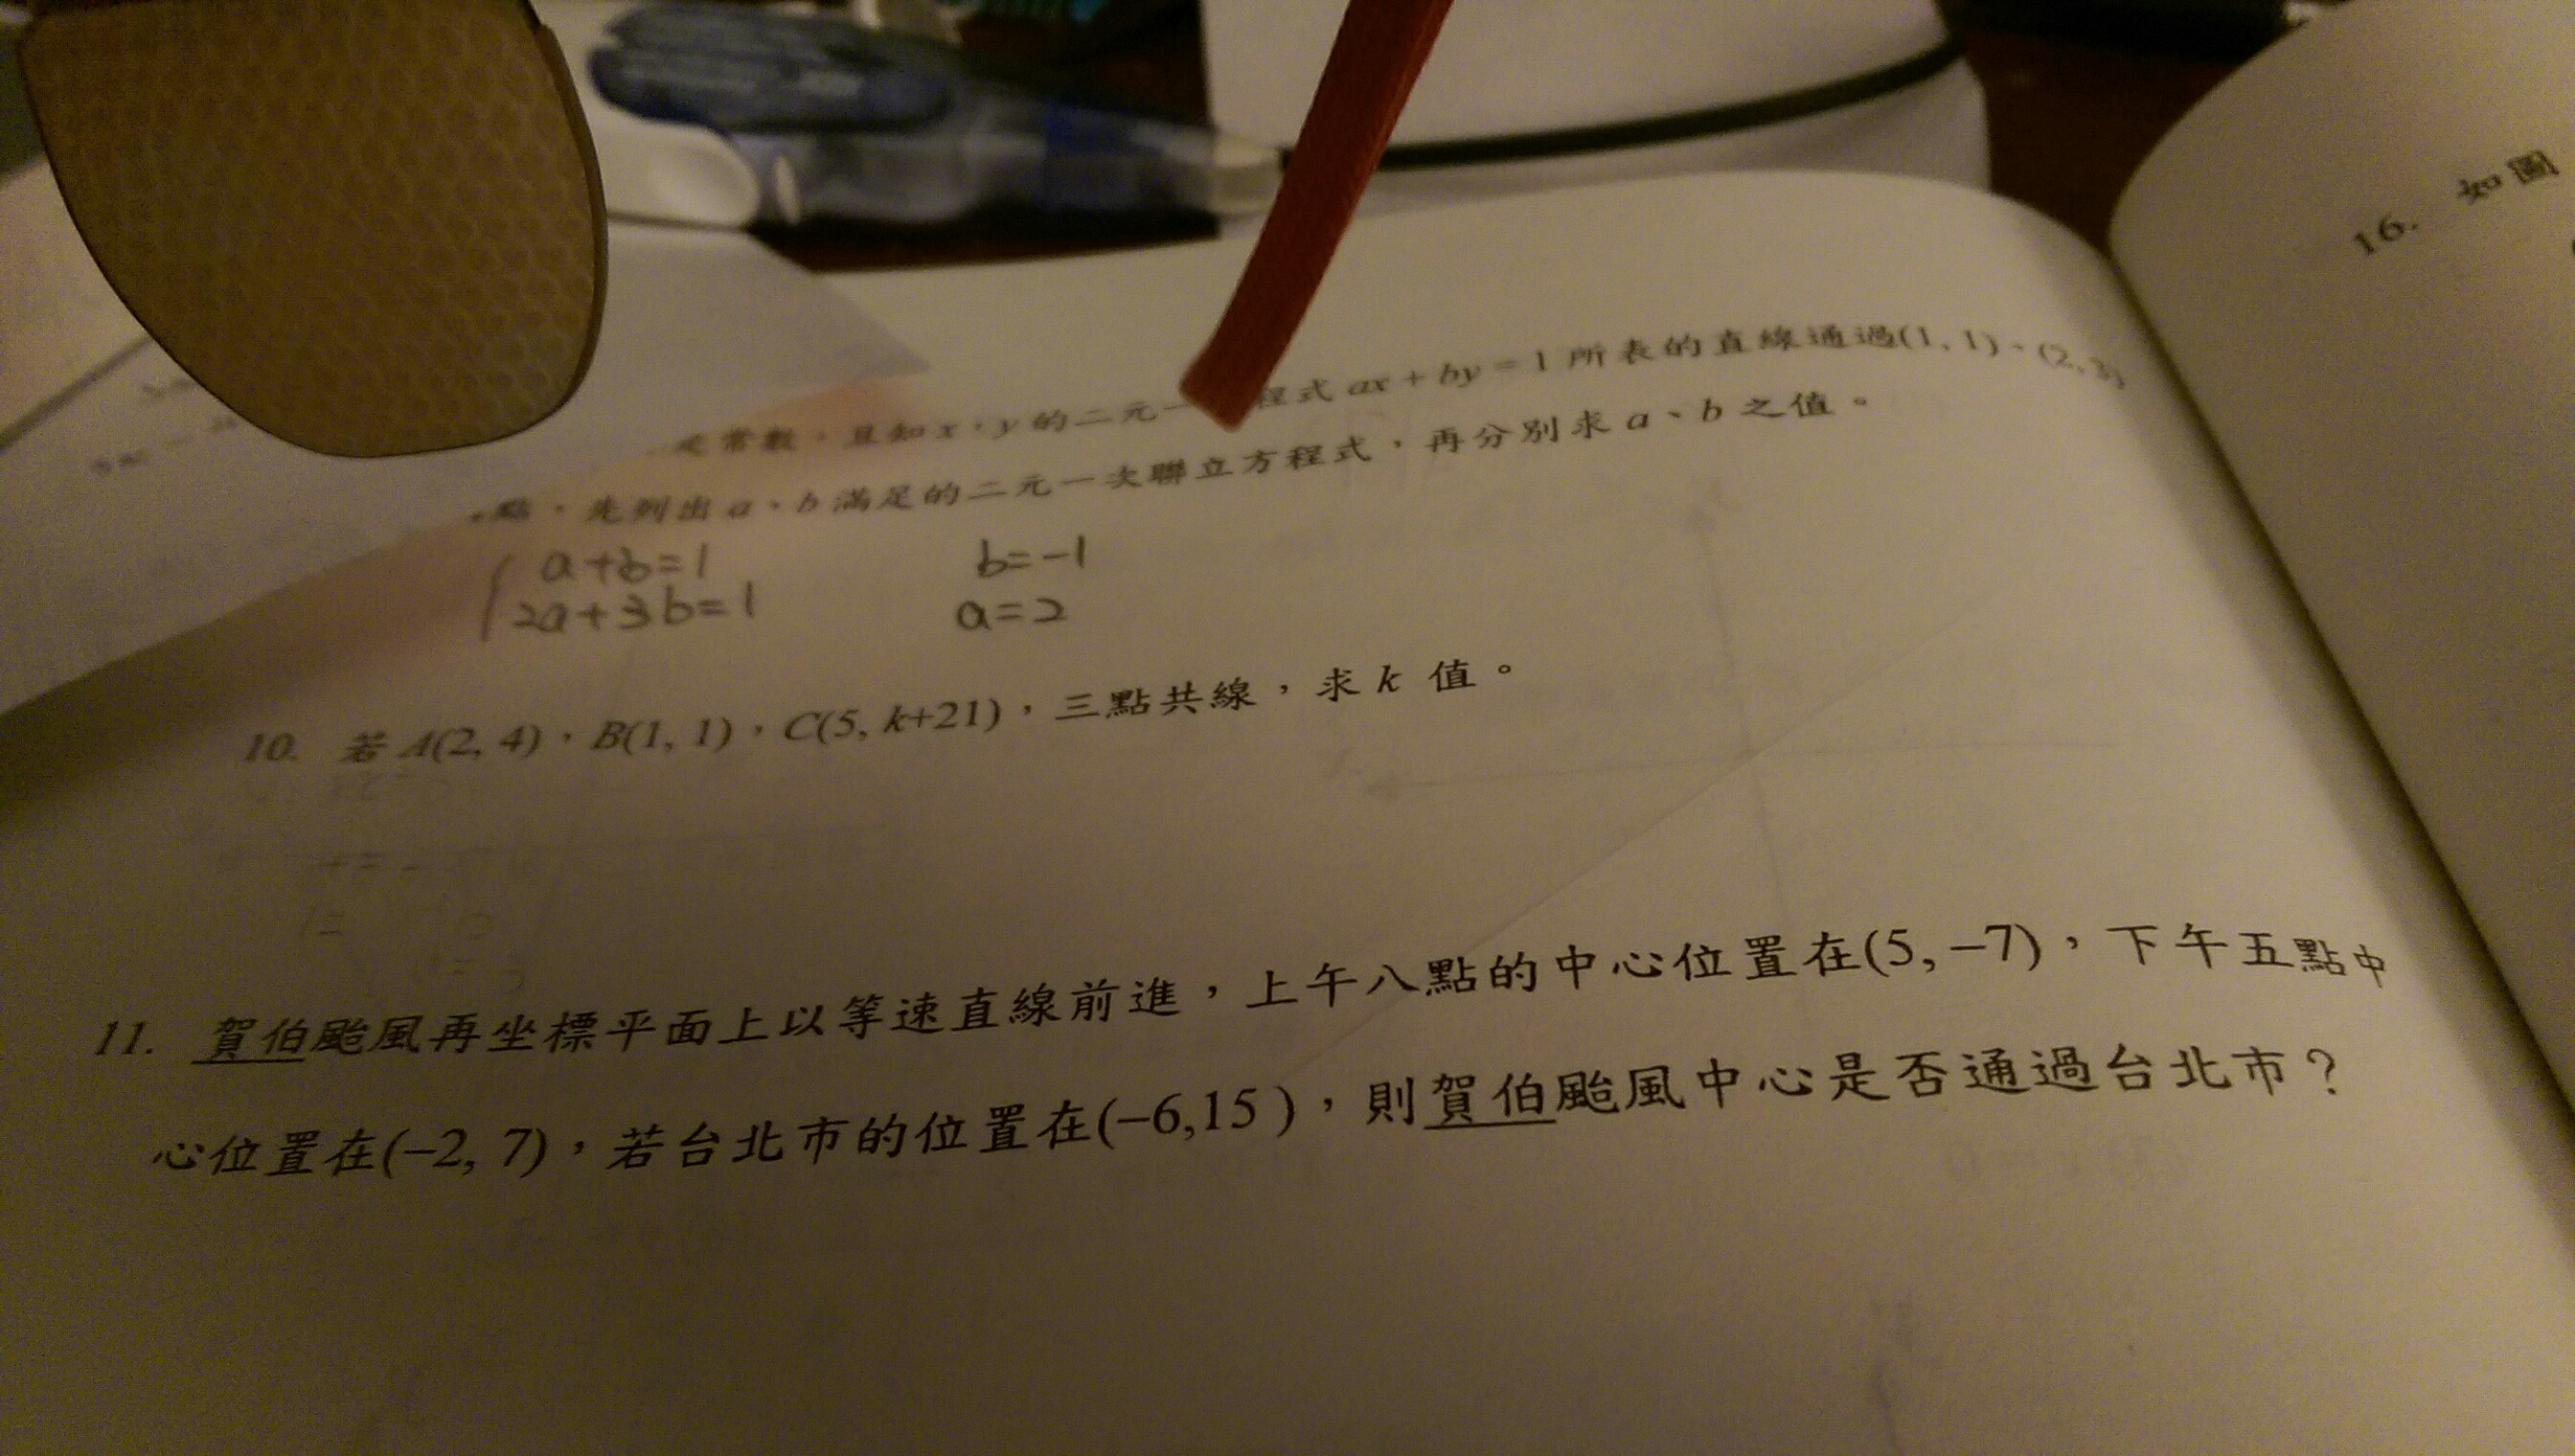 是常數，且知 x，y 的二元一 程式 ax + by = 1 所表的直線通過(1, 1)、(2, 3)
點，先列出 a、b 滿足的二元一次聯立方程式，再分別求 a、b 之值。
a+b=1
2a+3b=1
b=-1
a=2
10. 若 A(2, 4)，B(1, 1)，C(5, k+21)，三點共線，求 k 值。
11. 賀伯颱風再坐標平面上以等速直線前進，上午八點的中心位置在(5, −7)，下午五點中
心位置在(−2, 7)，若台北市的位置在(−6,15 )，則賀伯颱風中心是否通過台北市？
16. 如圖